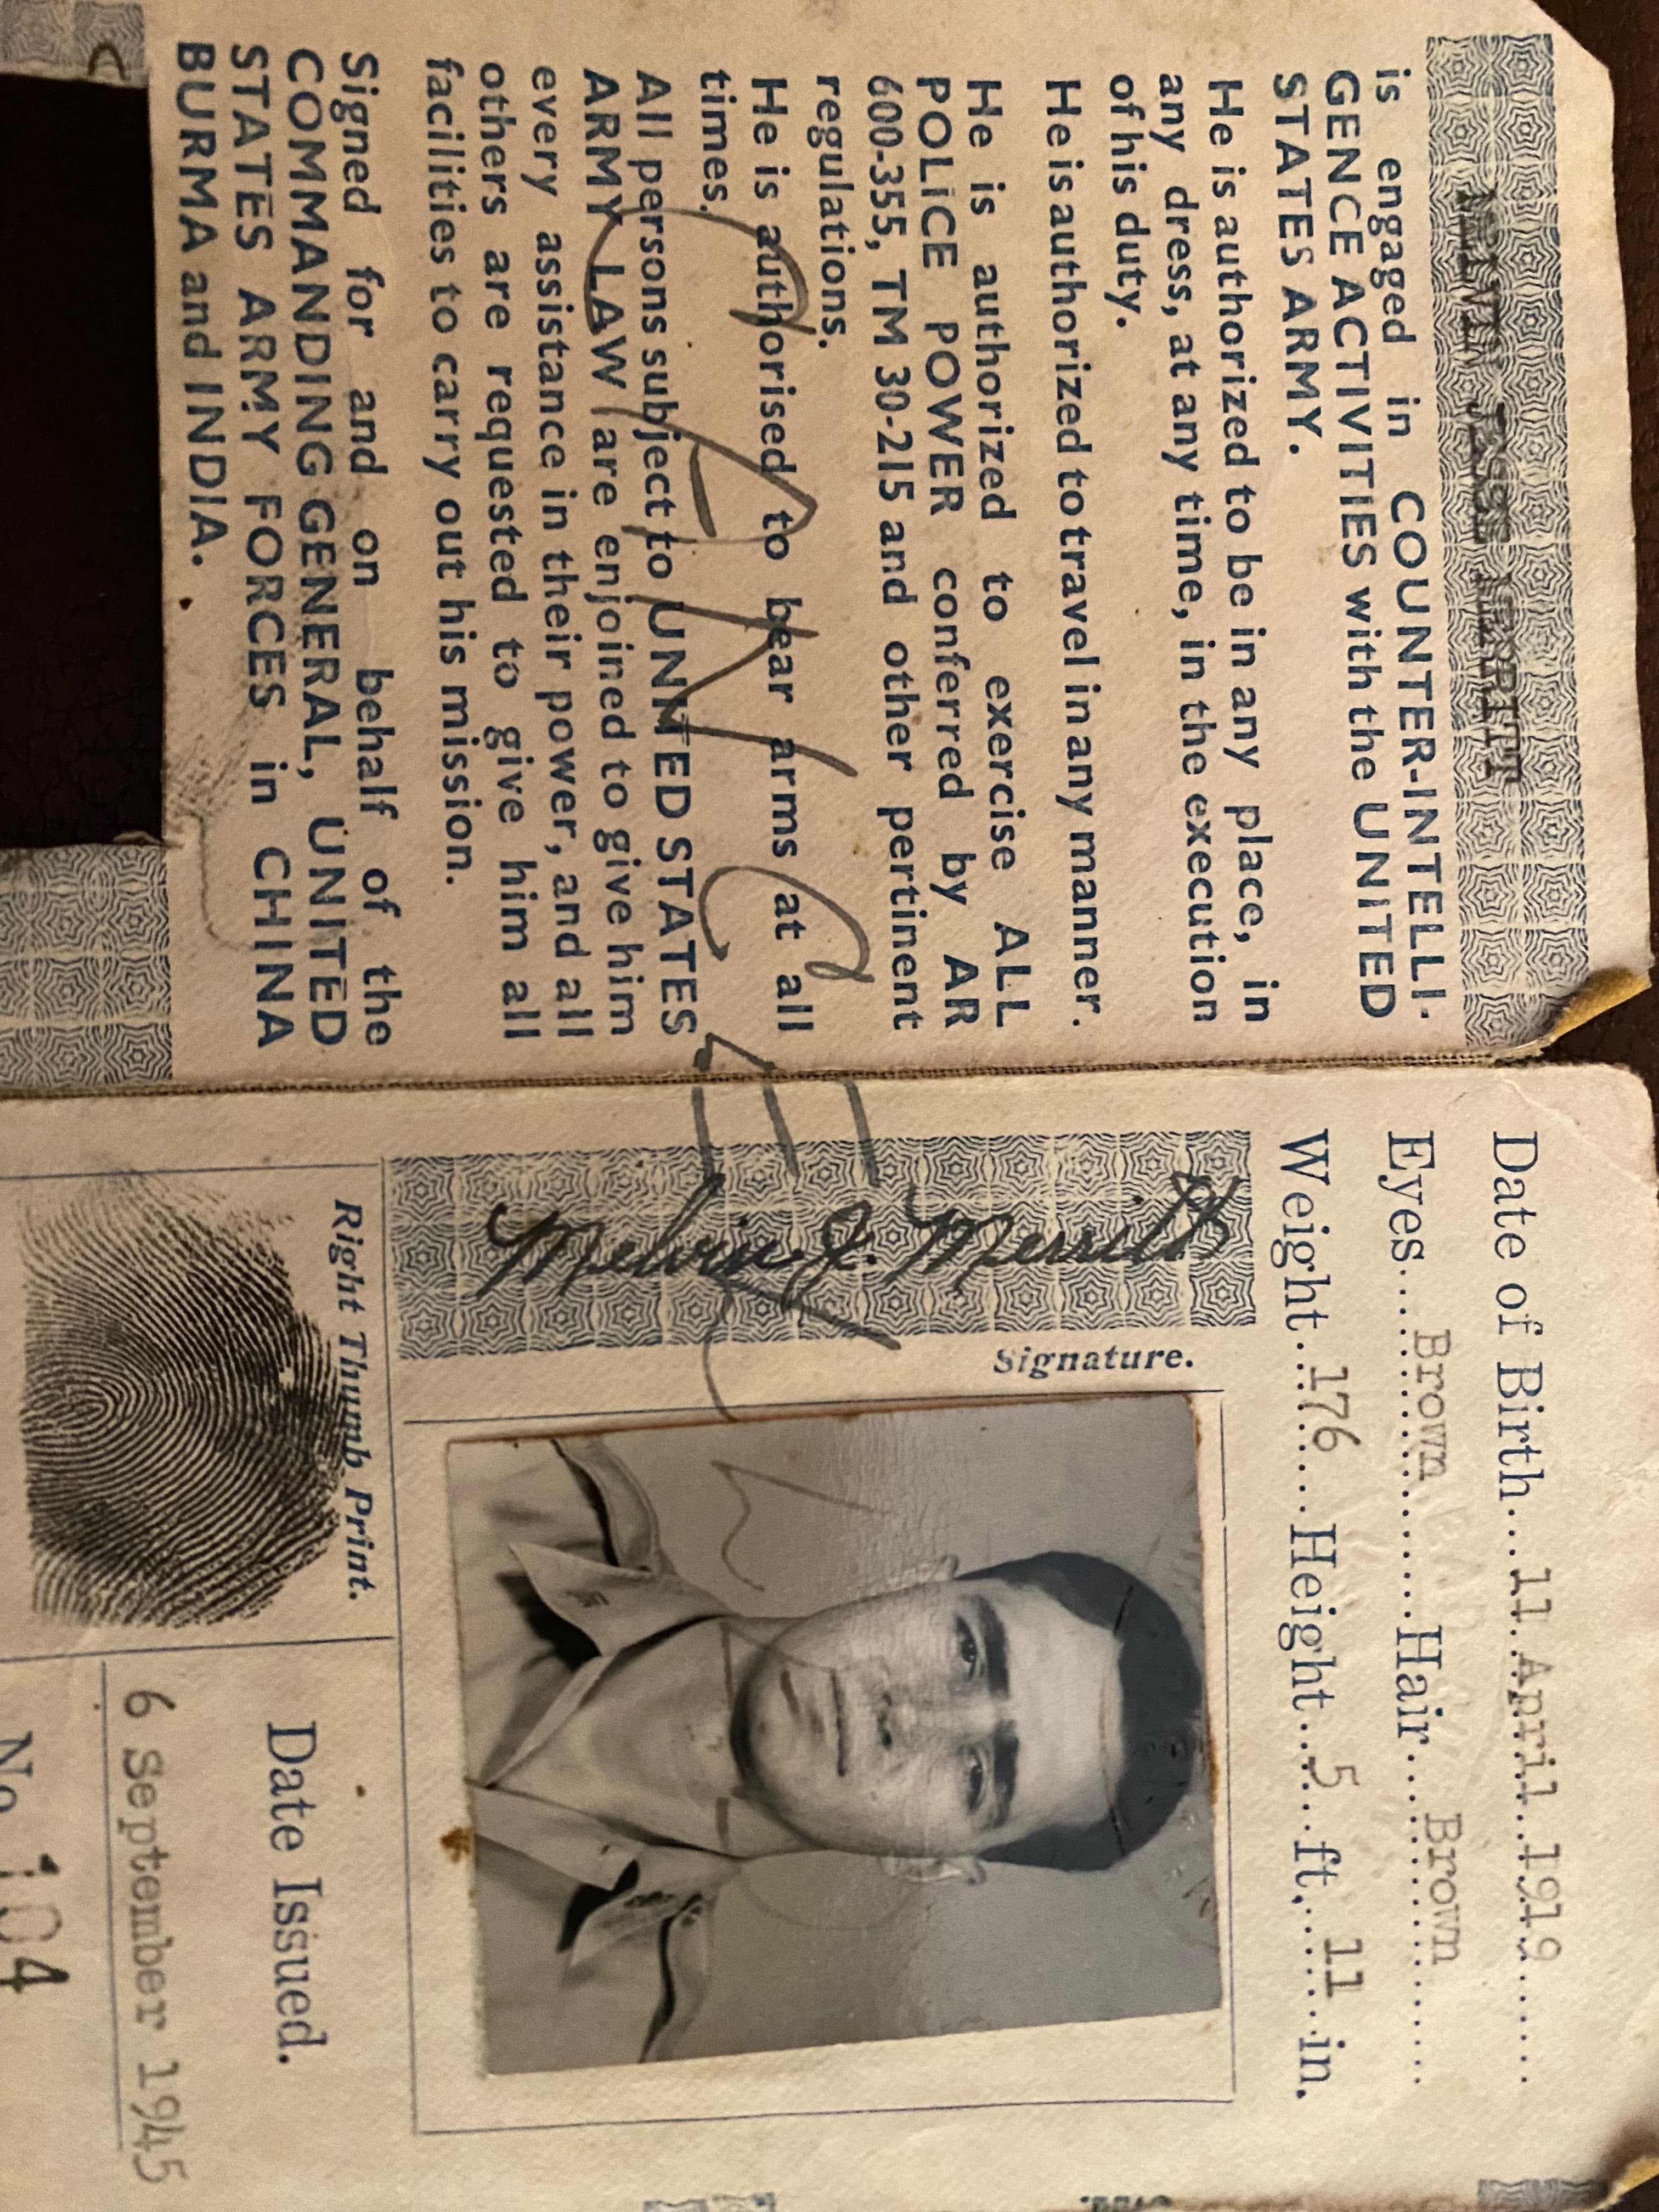 MELVIN JOSE MERRITT
is engaged in COUNTER-INTELLI-
GENCE ACTIVITIES with the UNITED
STATES ARMY.
He is authorized to be in any place, in
any dress, at any time, in the execution
of his duty.
He is authorized to travel in any manner.
He is authorized to exercise ALL
POLICE POWER conferred by AR
600-355, TM 30-215 and other pertinent
regulations.
He is authorised to bear arms at all
times.
All persons subject to UNITED STATES
ARMY LAW are enjoined to give him
every assistance in their power, and all
others are requested to give him all
facilities to carry out his mission.
Signed for and on behalf of the
COMMANDING GENERAL, UNITED
STATES ARMY FORCES in CHINA
BURMA and INDIA.
Date of Birth...11 April 1919......
Eyes...Brown......Hair...Brown......
Weight...176...Height...5...ft,...11...in.
Signature.
Melvin J. Merritt
Right Thumb Print.
Date Issued.
6 September 1945
No 104